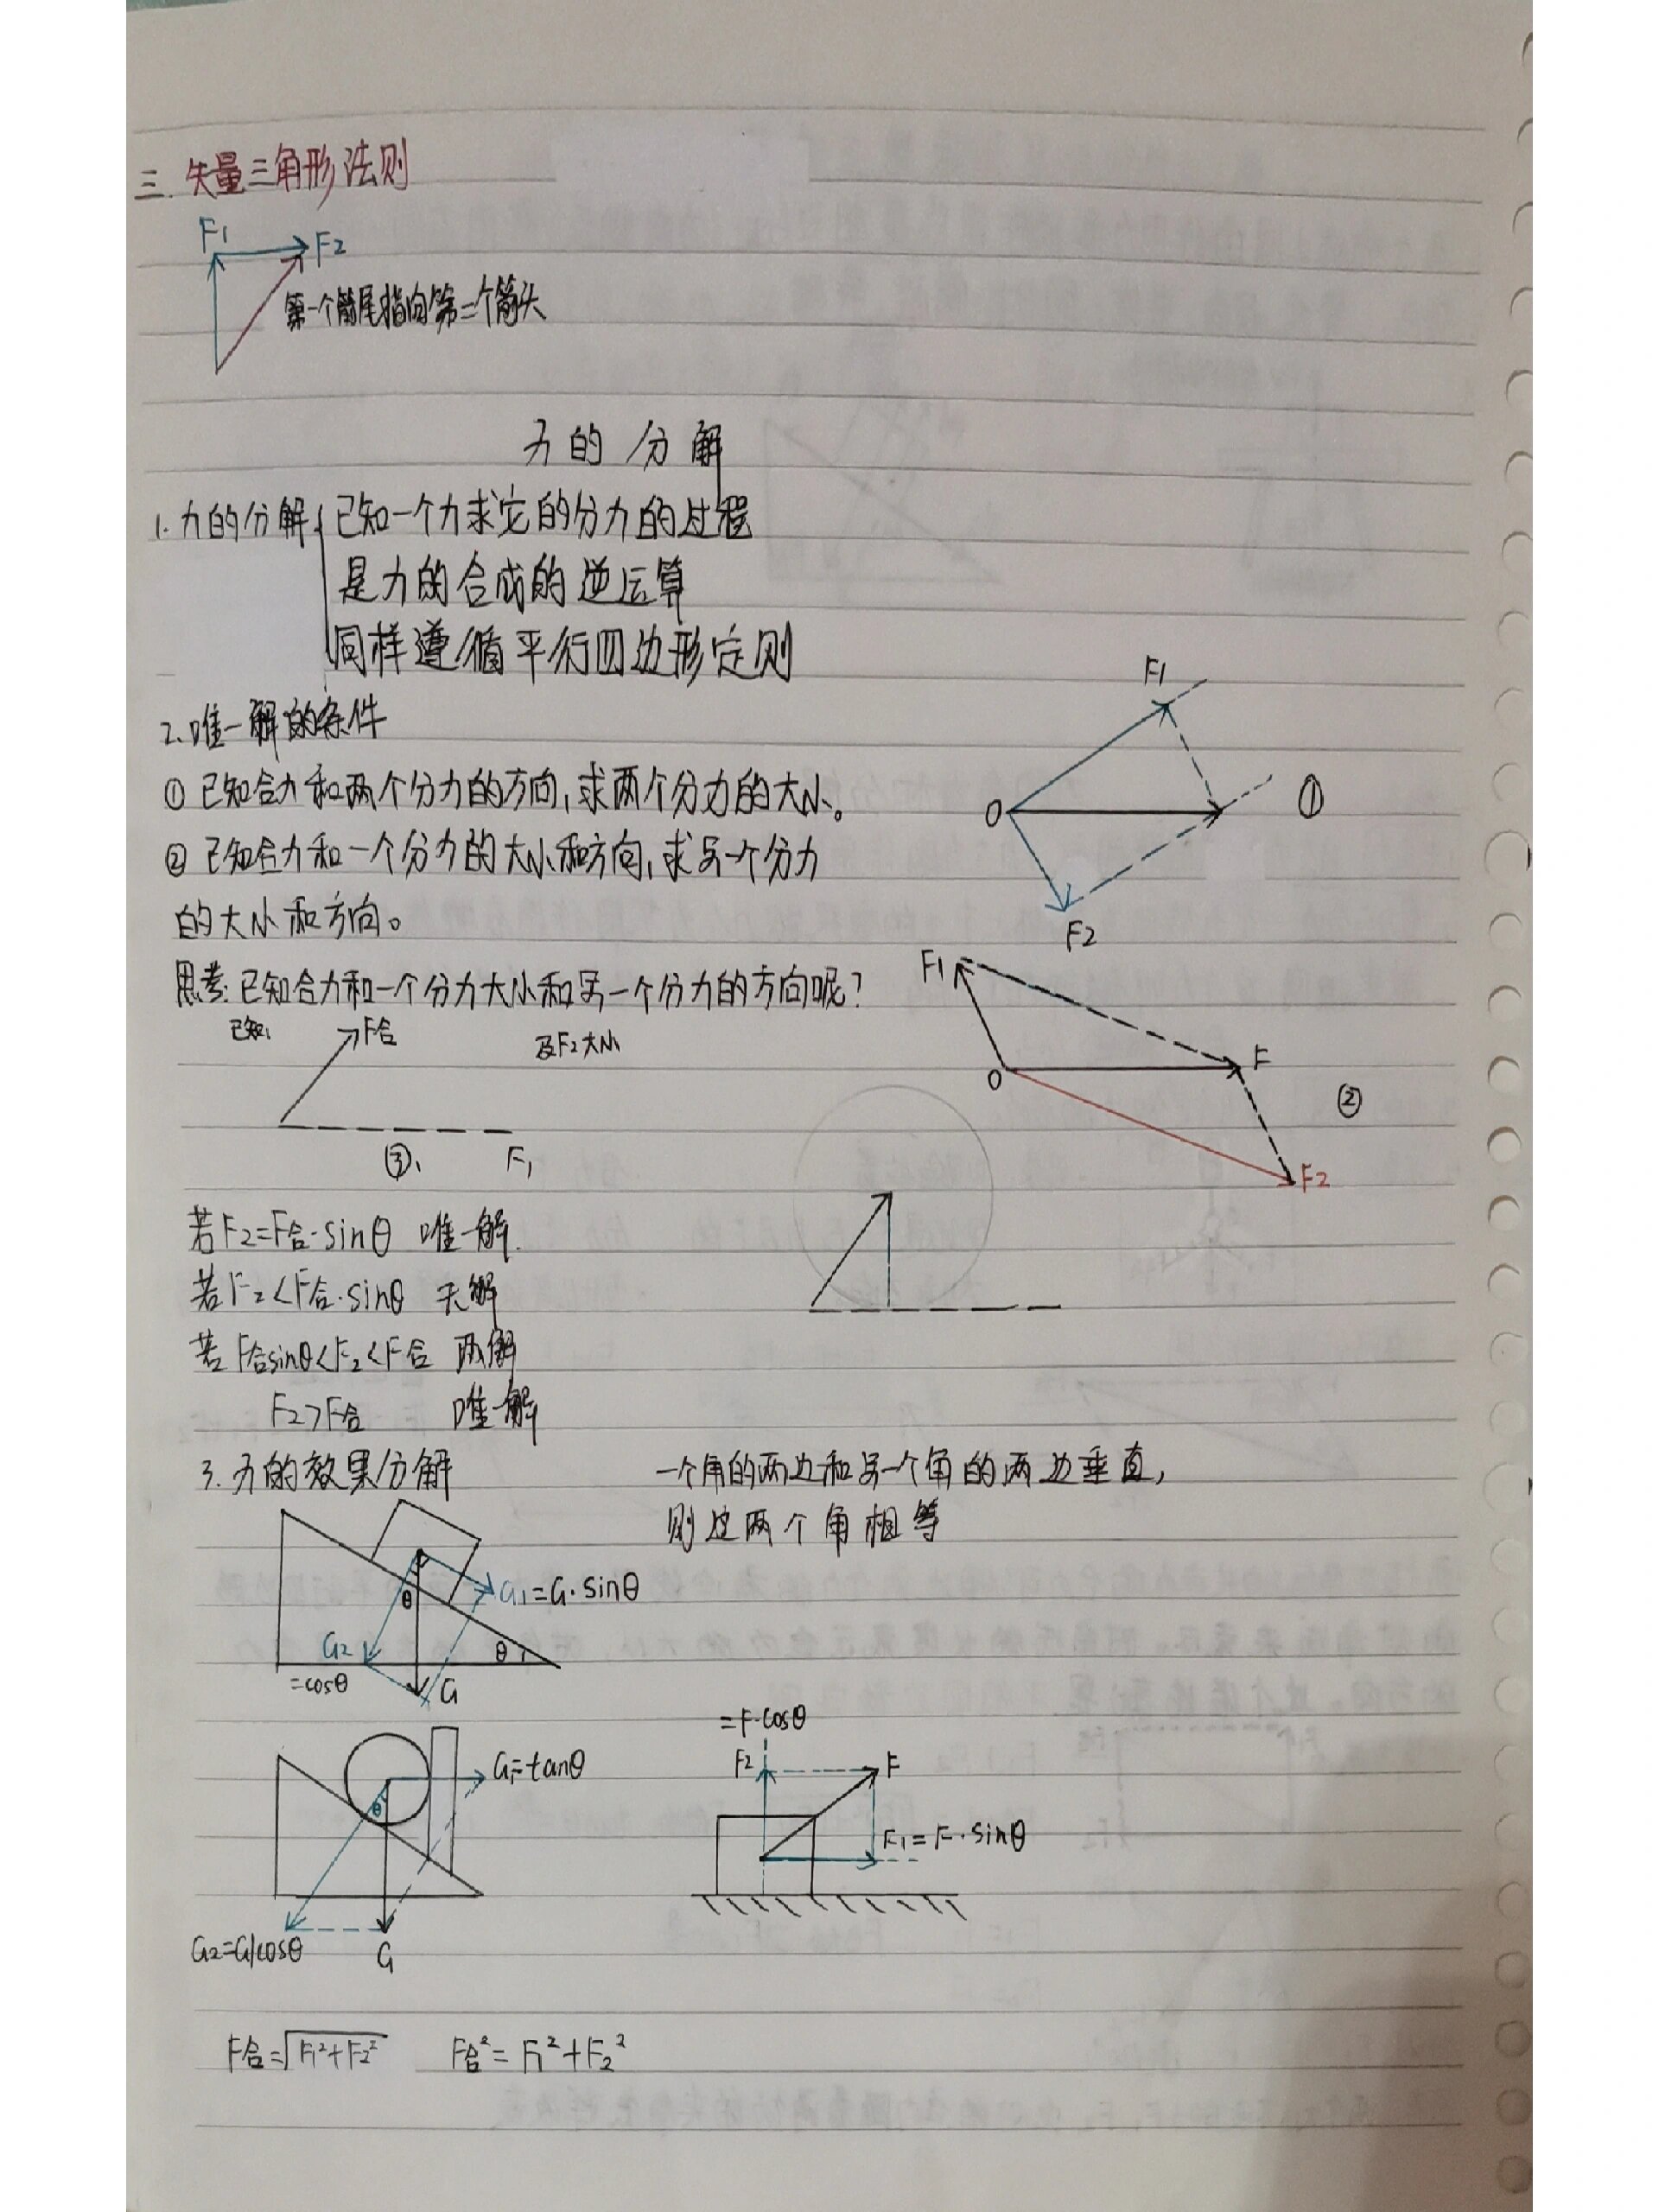 三. 矢量三角形法则
F1
F2
第一个箭尾指向第二个箭头
力的分解
1. 力的分解{已知一个力求它的分力的过程
是力的合成的逆运算
同样遵循平行四边形定则
2. 唯一解的条件
① 已知合力和两个分力的方向,求两个分力的大小。
② 已知合力和一个分力的大小和方向,求另一个分力
的大小和方向。
F1
O
①
F2
思考:已知合力和一个分力大小和另一个分力的方向呢?
已知:
F合
及F2大小
③.
F1
F1
O
F
②
F2
若F2=F合·sinθ 唯一解.
若F2<F合·sinθ 无解
若F合sinθ<F2<F合 两解
F2>F合 唯一解
3. 力的效果分解
一个角的两边和另一个角的两边垂直,
则这两个角相等
θ
G1=G·sinθ
G2
=cosθ
θ
G
θ
G1=tanθ
G2=G/cosθ
G
=F·cosθ
F2
F
F1=F·sinθ
F合=√F1²+F2²
F合²=F1²+F2²